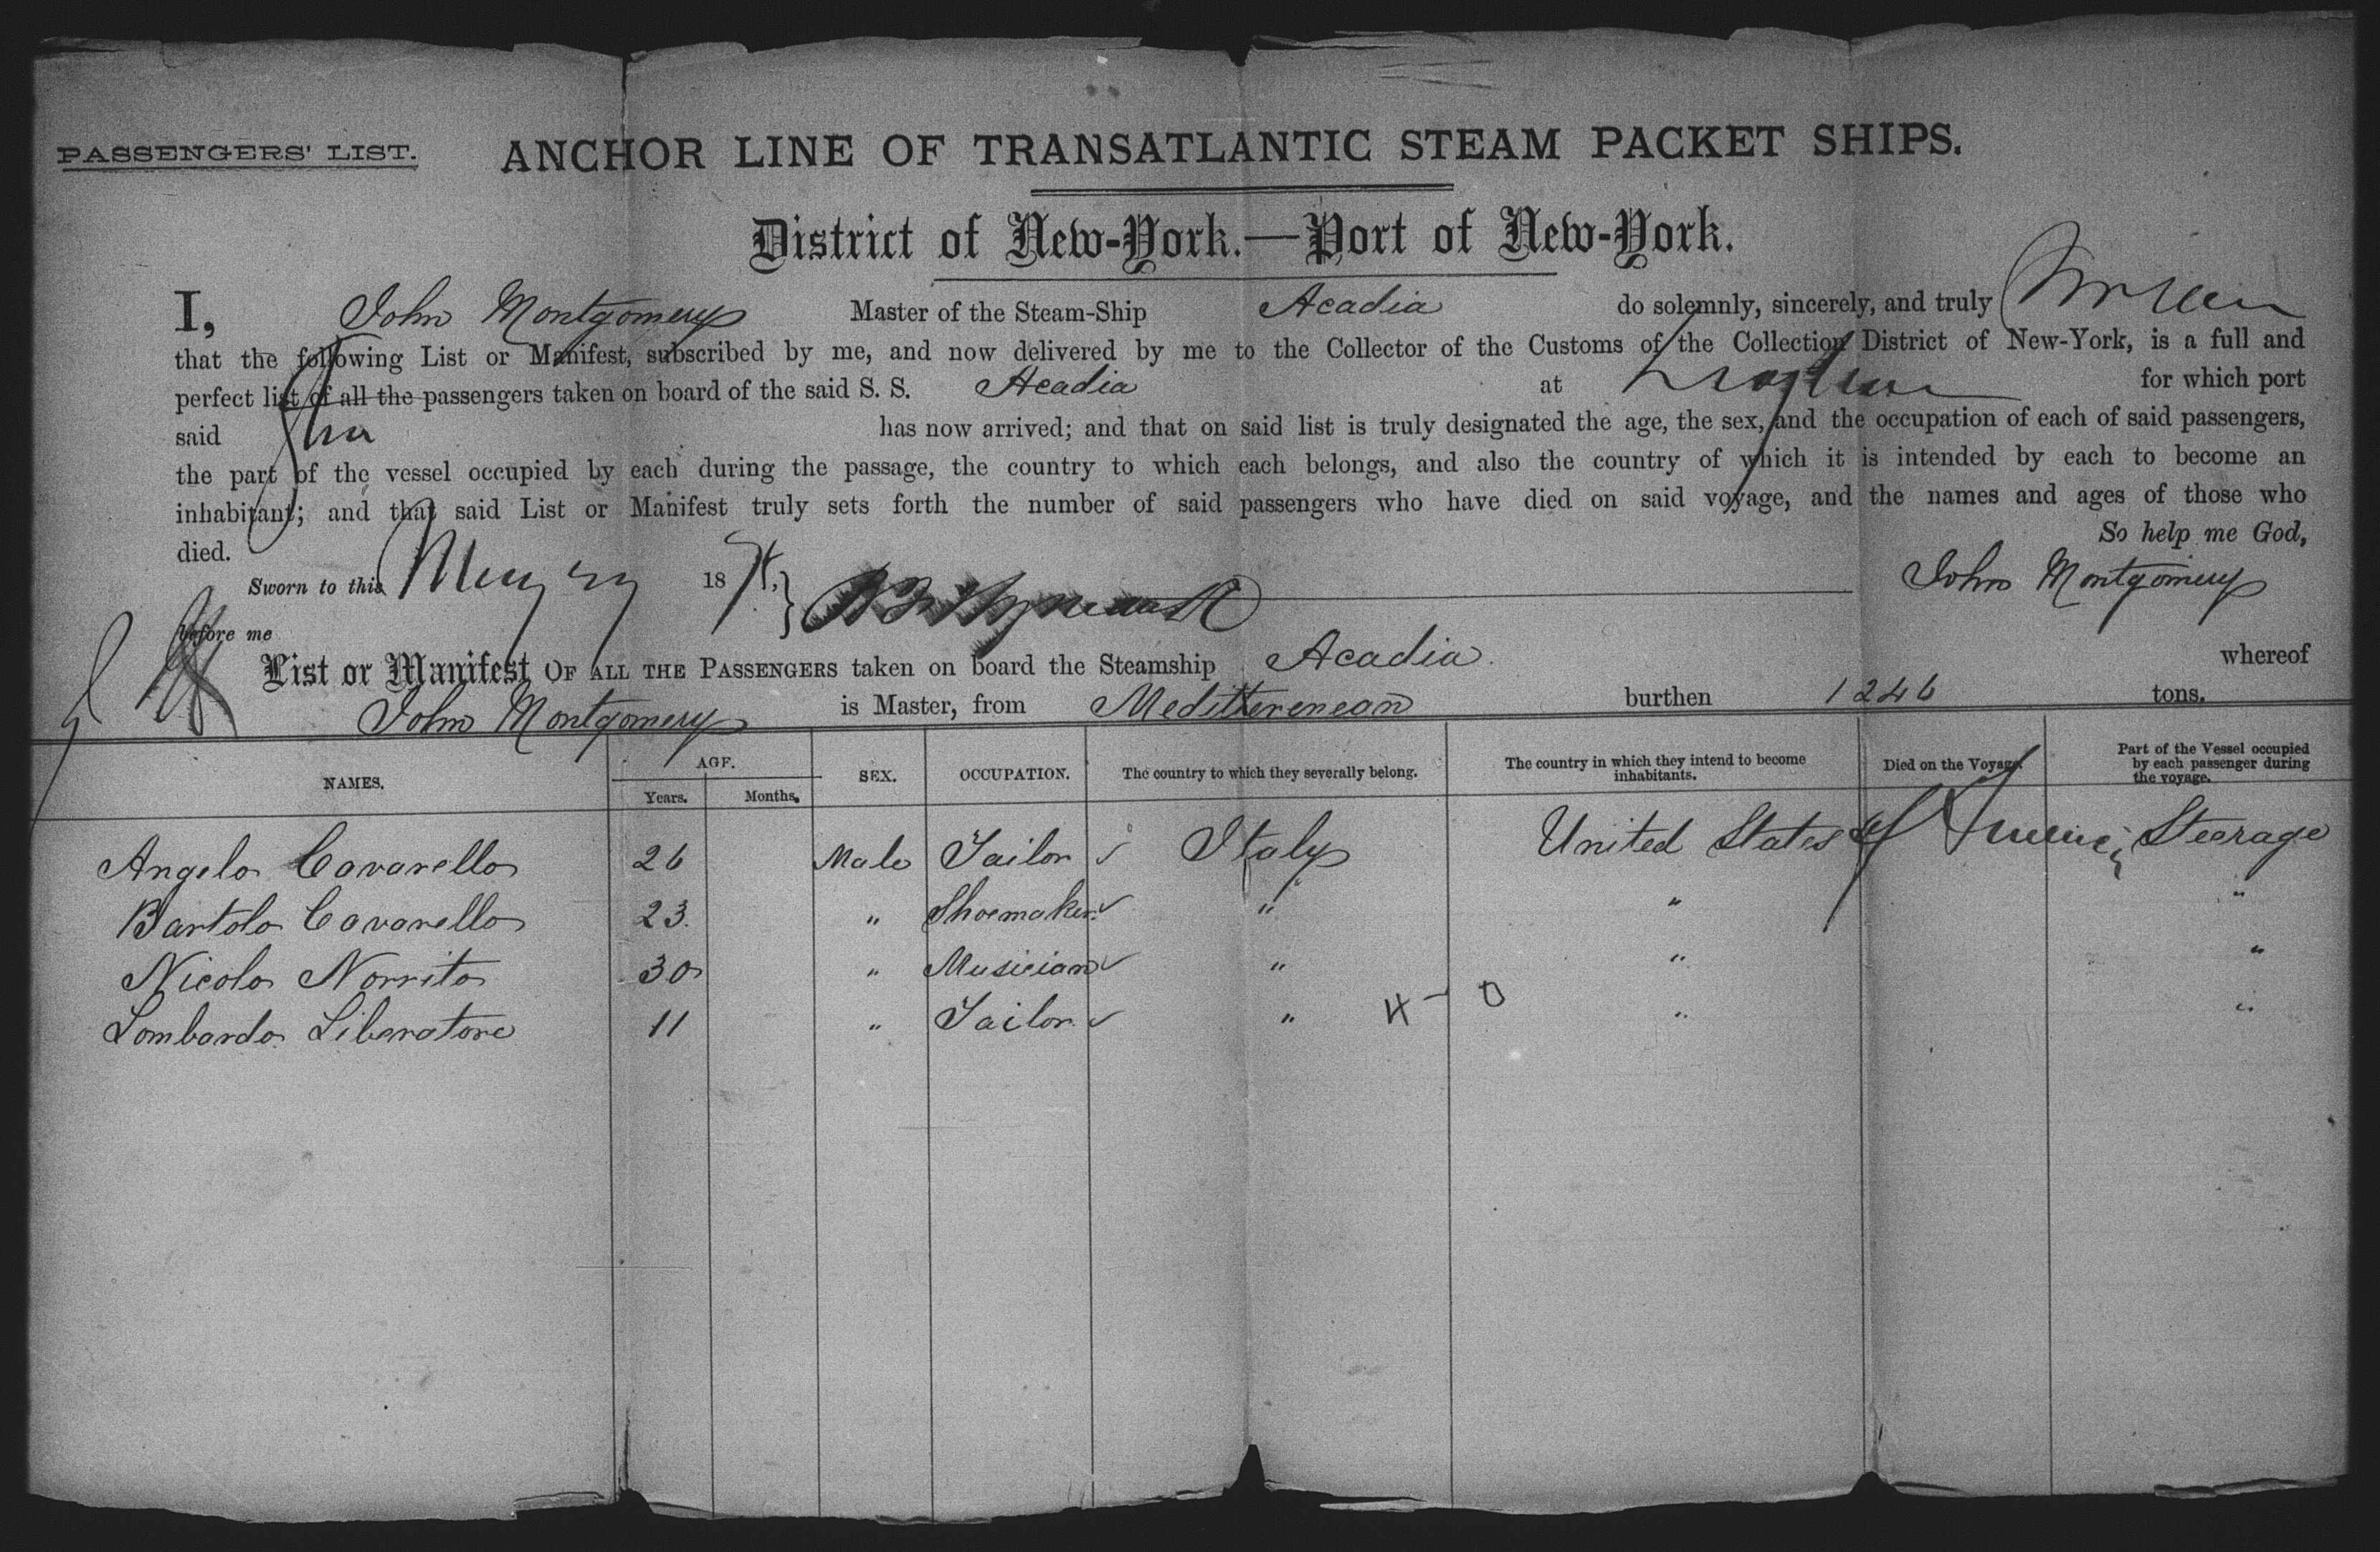 PASSENGERS' LIST. ANCHOR LINE OF TRANSATLANTIC STEAM PACKET SHIPS.
District of New-York.—Port of New-York.
I, John Montgomery Master of the Steam-Ship Acadia do solemnly, sincerely, and truly
that the following List or Manifest, subscribed by me, and now delivered by me to the Collector of the Customs of the Collection District of New-York, is a full and
perfect list of all the passengers taken on board of the said S. S. Acadia at for which port
said has now arrived; and that on said list is truly designated the age, the sex, and the occupation of each of said passengers,
the part of the vessel occupied by each during the passage, the country to which each belongs, and also the country of which it is intended by each to become an
inhabitant; and that said List or Manifest truly sets forth the number of said passengers who have died on said voyage, and the names and ages of those who
died. So help me God,
Sworn to this 18 John Montgomery
before me
List or Manifest OF ALL THE PASSENGERS taken on board the Steamship Acadia. whereof
John Montgomery is Master, from Mediterenean burthen 1246 tons.
NAMES. AGE. Years. Months. SEX. OCCUPATION. The country to which they severally belong. The country in which they intend to become inhabitants. Died on the Voyage. Part of the Vessel occupied by each passenger during the voyage.
Angelo Cavarello 26 Male Tailor ✓ Italy United States of Steerage
Bartolo Cavarello 23. " Shoemaker ✓ " " "
Nicolo Norrito 30 " Musician ✓ " " "
Lombardo Liberatore 11 " Tailor ✓ " 4-0 " "